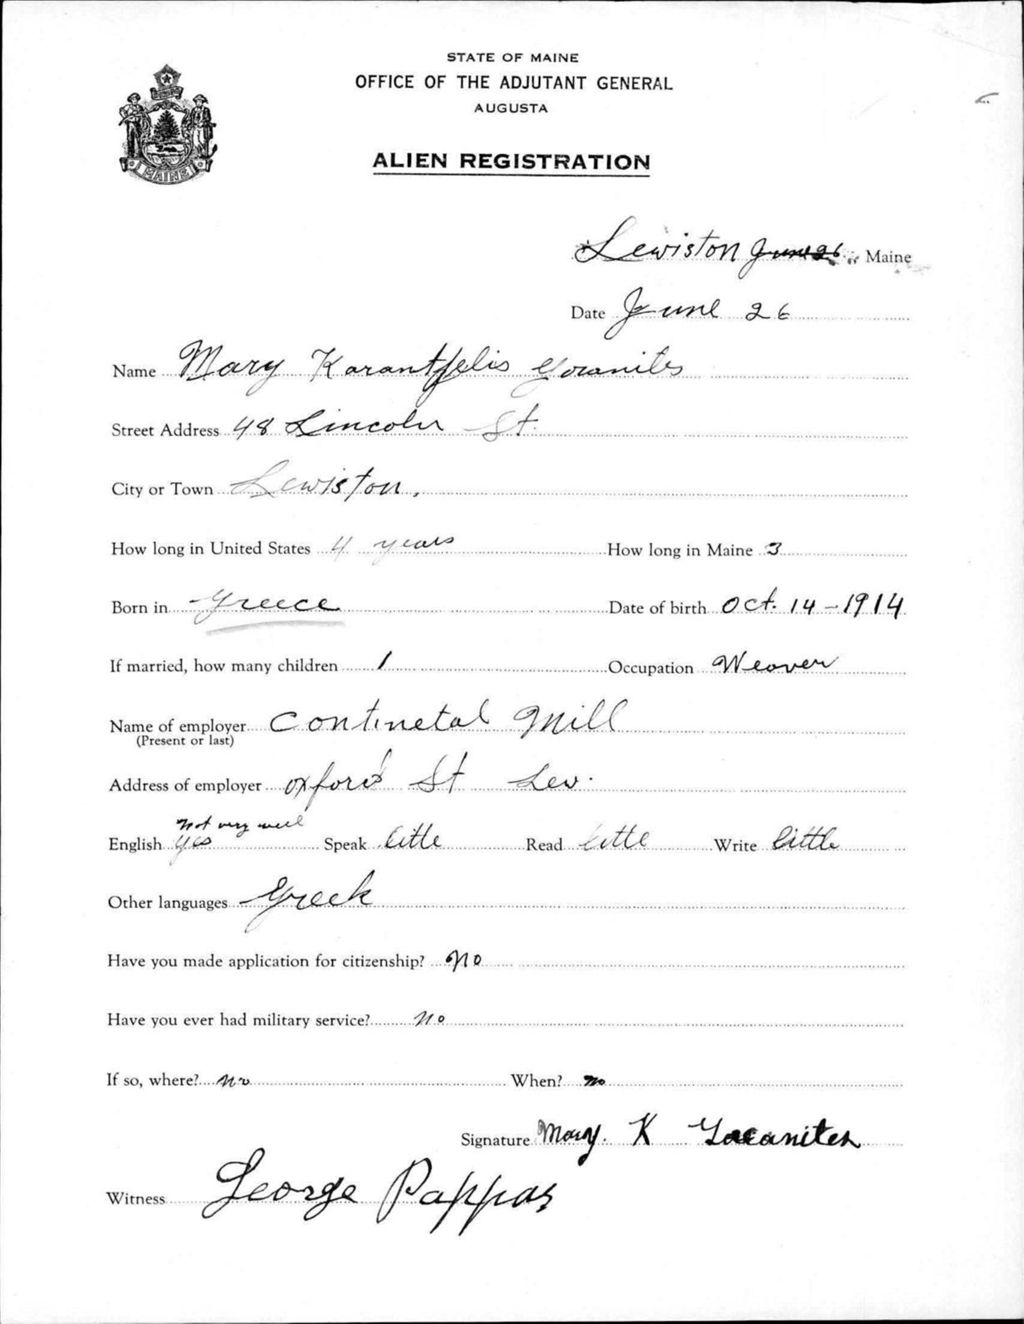 STATE OF MAINE
OFFICE OF THE ADJUTANT GENERAL
AUGUSTA
ALIEN REGISTRATION
Lewiston June 26, Maine
Date June 26
Name Mary Karantjelis
Street Address 48 Lincoln St.
City or Town Lewiston.
How long in United States 4 years How long in Maine 3
Born in Greece Date of birth Oct. 14-1914
If married, how many children 1 Occupation Weaver
Name of employer Continetal Mill
(Present or last)
Address of employer Oxford St Lew.
not very well
English Yes Speak little Read little Write little
Other languages Greek
Have you made application for citizenship? No
Have you ever had military service? no
If so, where? no When? no
Signature Mary. K
Witness George Pappas
MAINE